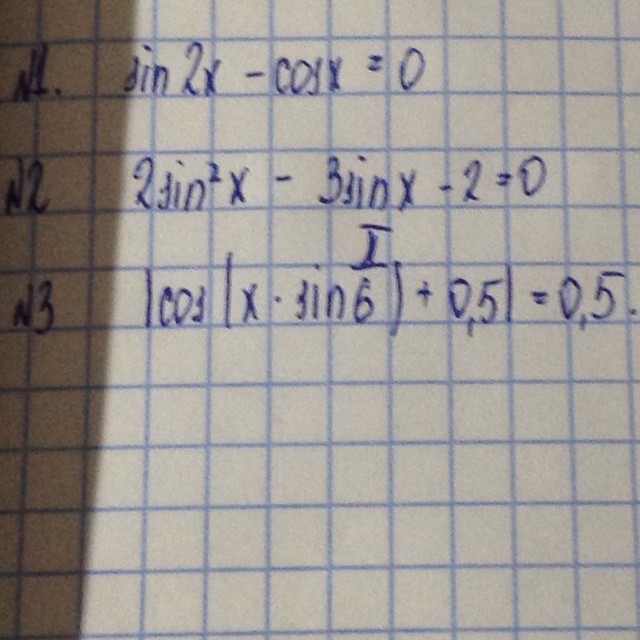 №1. sin 2x - cosx = 0
№2 2sin²x - 3sinx - 2 = 0
№3 |cos(x · sin π/6) + 0,5| = 0,5.